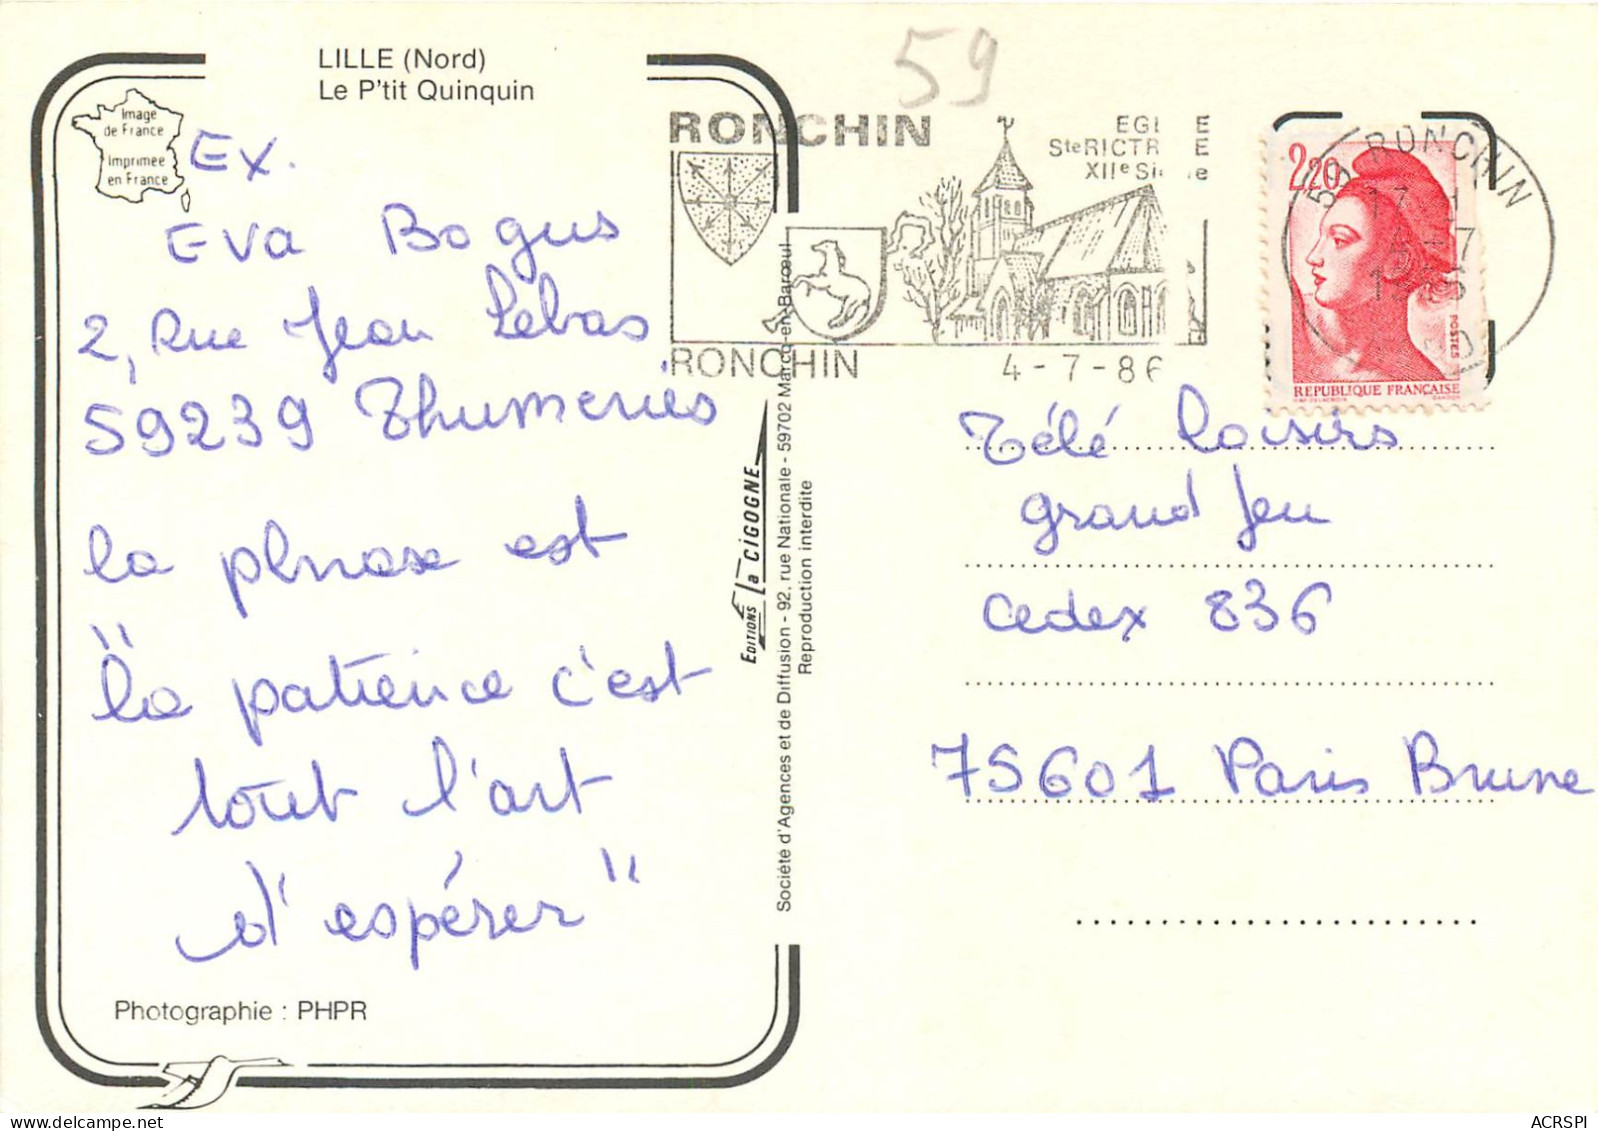 LILLE (Nord)
Le P'tit Quinquin
Image
de France
Imprimée
en France
Ex.
Eva Bogus
2, Rue Jean Lebas
59239 Thumeries
la phrase est
"la patience c'est
tout l'art
d'espérer"
Photographie : PHPR
EDITIONS La CIGOGNE
Société d'Agences et de Diffusion - 92, rue Nationale - 59702 Marcq-en-Barœul
Reproduction interdite
59
RONCHIN
EGL E
Ste RICTR E
XIIe Si e
RONCHIN
4-7-86
59 RONCHIN
2,20
POSTES
REPUBLIQUE FRANÇAISE
Télé loisirs
grand Jeu
Cedex 836
75601 Paris Brune
ACRSPI